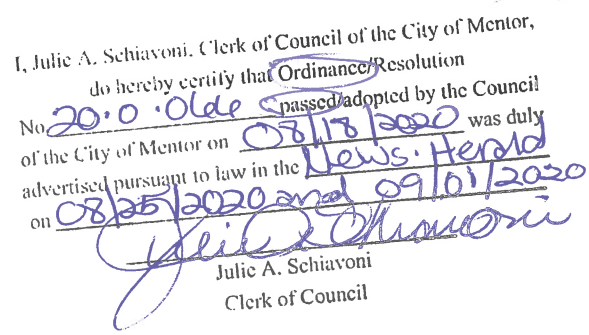 I, Julie A. Schiavoni, Clerk of Council of the City of Mentor,
do hereby certify that Ordinance/Resolution
No. passed/adopted by the Council
of the City of Mentor on 08/18/2020 was duly
advertised pursuant to law in the News-Herald
on 08/25/2020 and 09/01/2020
Julie A. Schiavoni
Julie A. Schiavoni
Clerk of Council